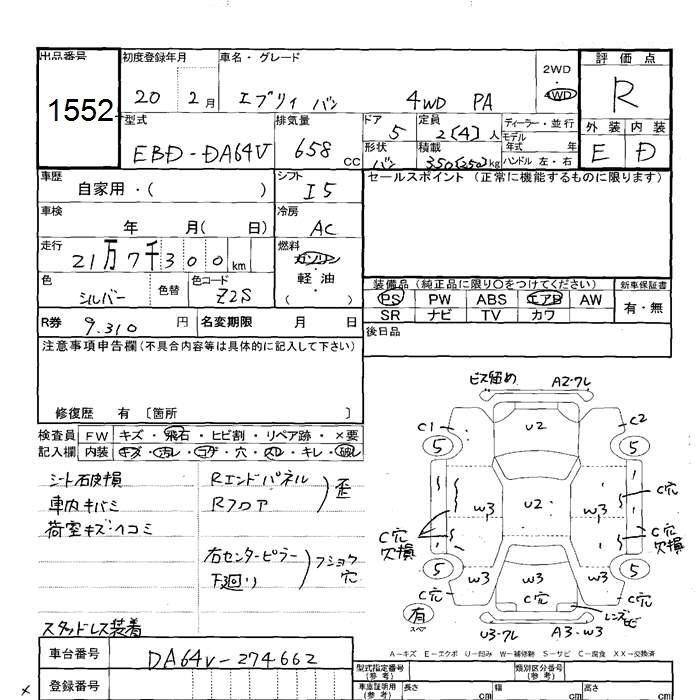 出品番号 初度登録年月 車名・グレード 2WD 評価点
1552 20年 2月 エブリイ バン 4WD PA 4WD R
型式 排気量 ドア 定員 ディーラー・並行 外装 内装
EBD-DA64V 658cc 5 2[4]人 モデル年式 年式 E D
形状 積載 ハンドル 左・右
バン 350(250)kg
車歴 シフト セールスポイント (正常に機能するものに限ります)
自家用・( ) I5
車検 冷房
年 月( 日) AC
走行 燃料
21万7千300km ガソリン・軽油・( )
色 色替 色コード 装備品(純正品に限り○をつけてください) 新車保証書
シルバー Z2S PS PW ABS エアB AW 有・無
SR ナビ TV カワ
R券 9.310円 名変期限 月 日 後日品
注意事項申告欄(不具合内容等は具体的に記入して下さい)
修復歴 有 〔箇所 〕
検査員 FW キズ・飛石・ヒビ割・リペア跡・×要
記入欄 内装 キズ・汚レ・コゲ・穴・スレ・キレ・破レ
シート石皮損 Rエンドパネル
車内キバミ Rフロア 歪
荷室キズ・ヘコミ
右センターピラー フショク
下廻り 穴
スタッドレス装着
ビス留め A2-フレ
C1 U2 C2
5 5
W3 U2 W3 C穴
C穴 欠損 C穴 欠損
5 W3 W3 W3 5
C穴 C穴 C穴
有 スペア レンズヒビ
U3-フレ A3-W3
A-キズ E-エクボ U-凹み W-補修跡 S-サビ C-腐食 XX-交換済
車台番号 DA64V-274662 型式指定番号(参考) 類別区分番号(参考)
登録番号 車庫証明用(参考) 長さ cm 幅 cm 高さ cm